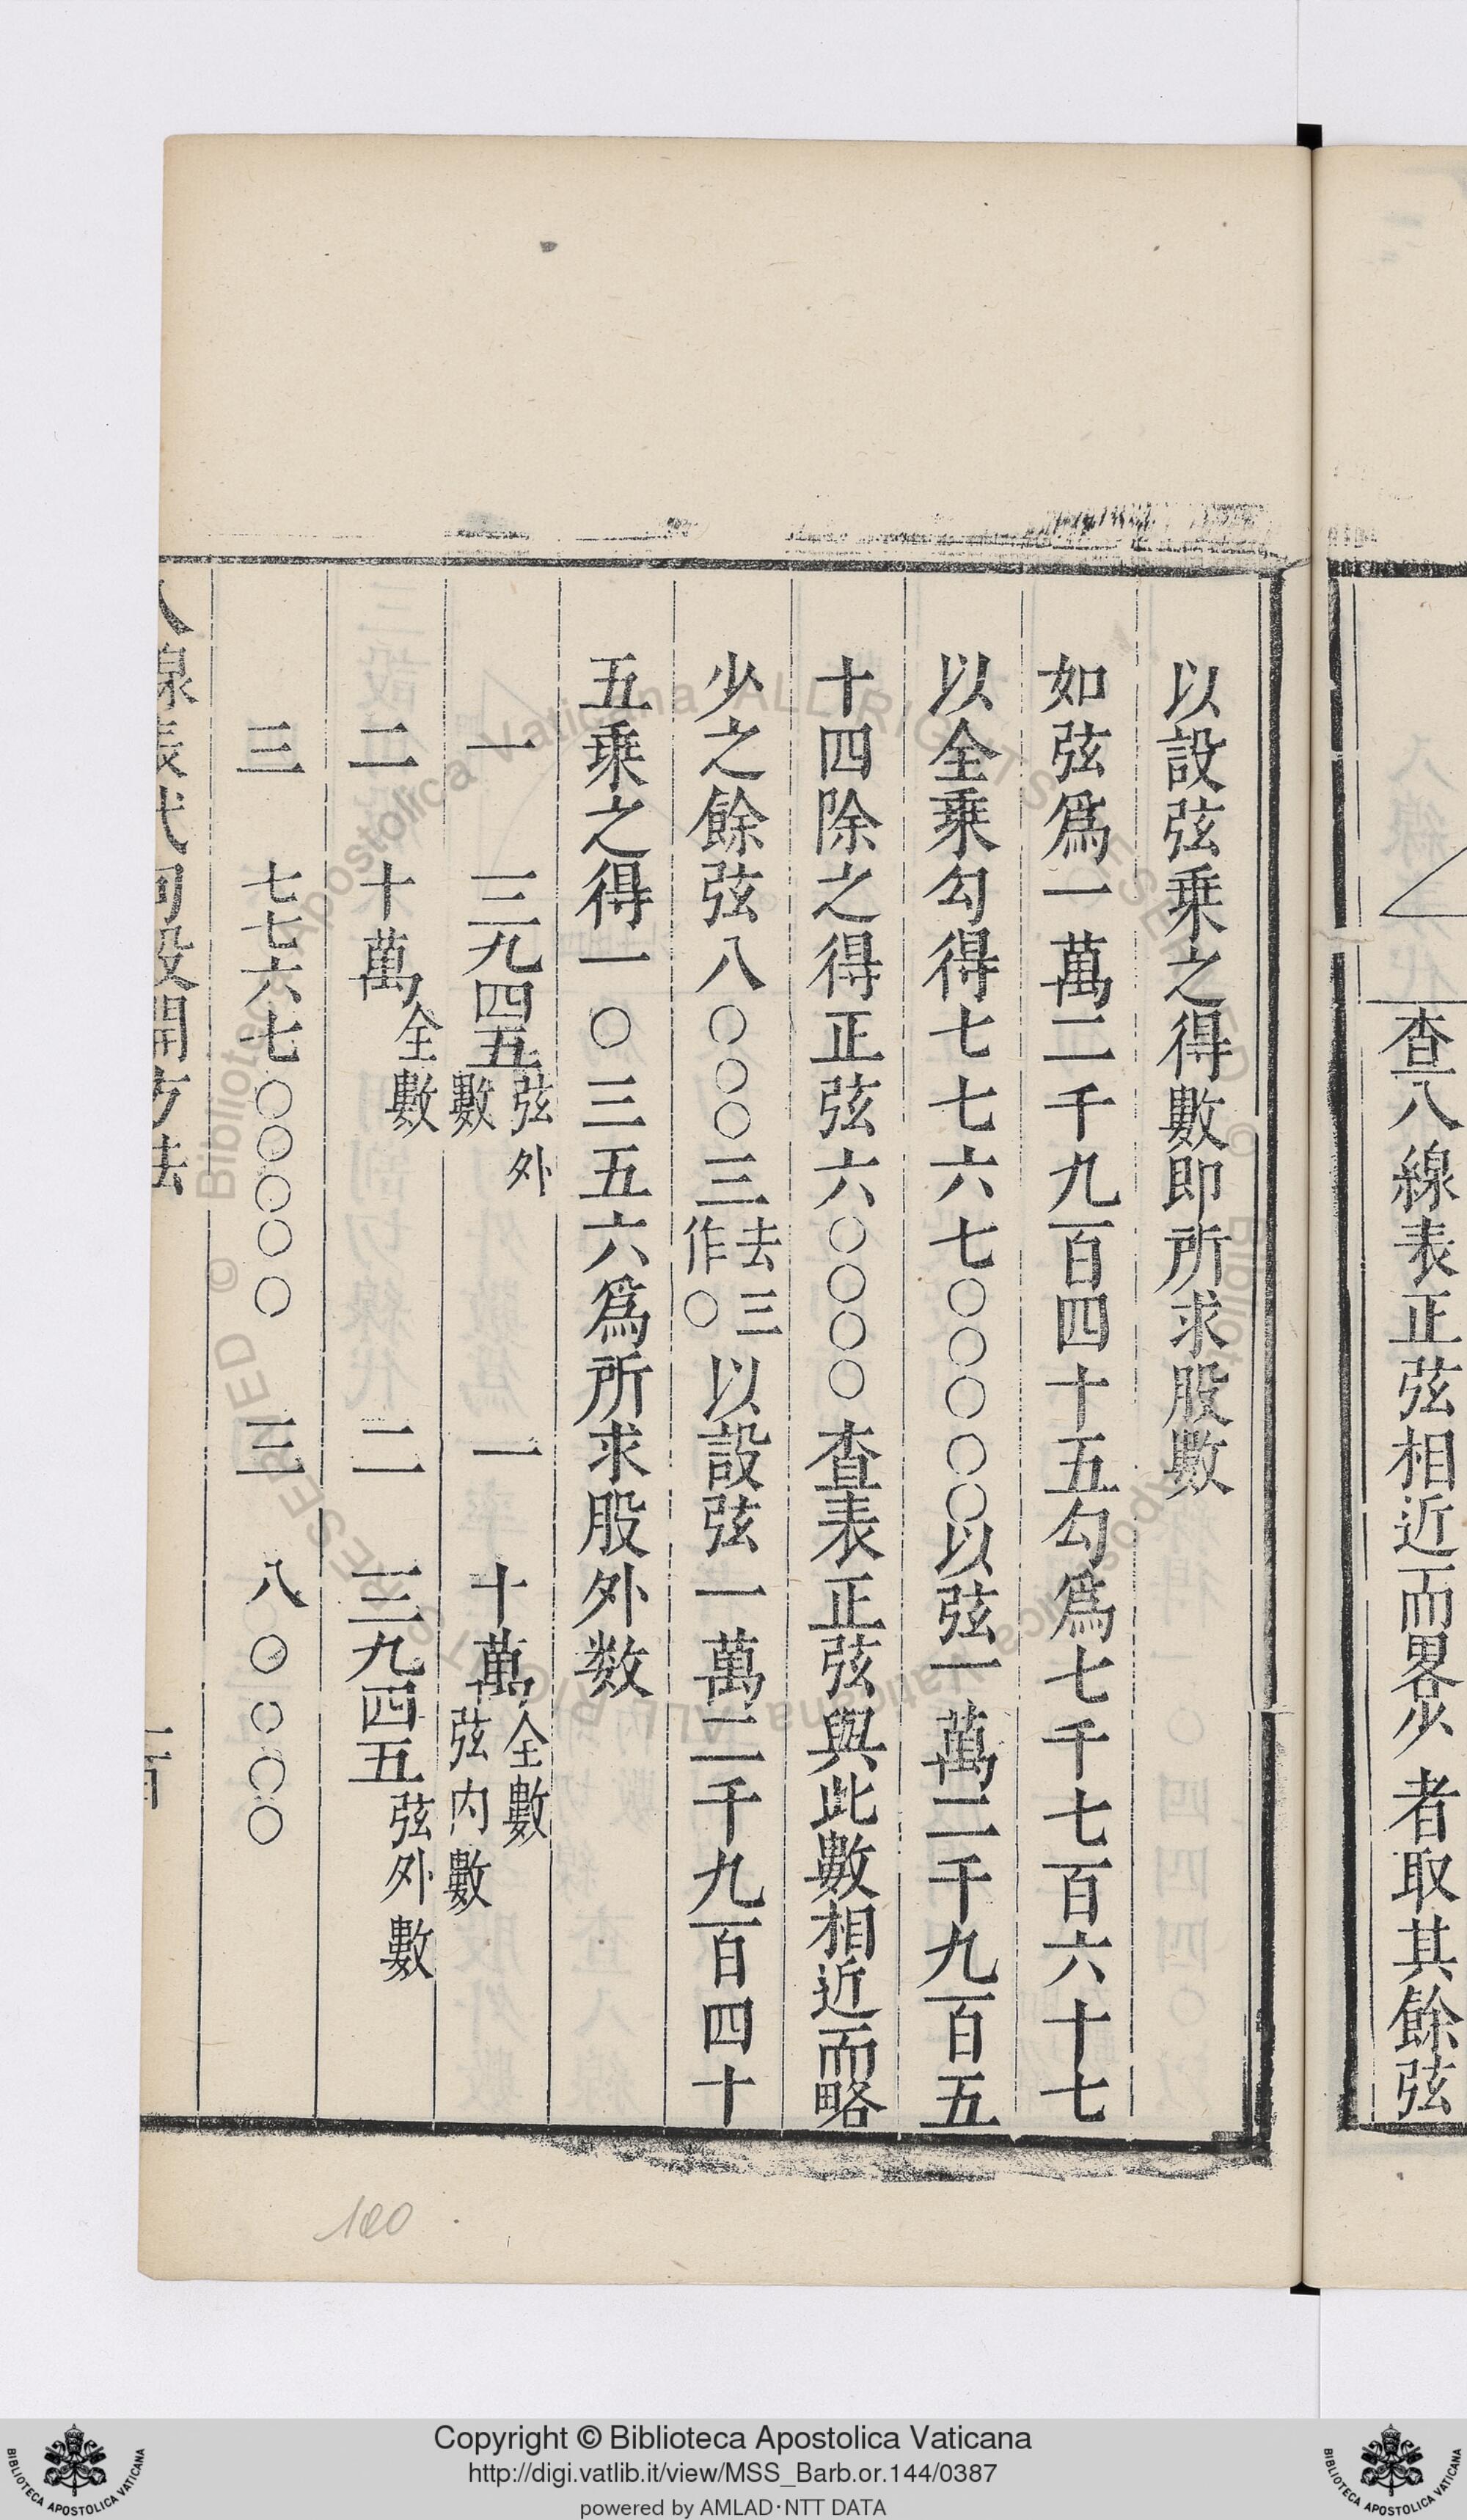 查八線表正弦相近而畧少者取其餘弦
以設弦乘之得數即所求股數
如弦爲一萬二千九百四十五勾爲七千七百六十七
以全乘勾得七七六七〇〇〇〇〇以弦一萬二千九百五
十四除之得正弦六〇〇〇〇查表正弦與此數相近而略
少之餘弦八〇〇〇三去三作〇以設弦一萬二千九百四十
五乘之得一〇三五六爲所求股外数
一 一二九四五弦外數 一 十萬全數弦內數
二 十萬全數 二 一二九四五弦外數
三 七七六七〇〇〇〇〇 三 八〇〇〇〇
線表代勾股開方法
100
Copyright © Biblioteca Apostolica Vaticana
http://digi.vatlib.it/view/MSS_Barb.or.144/0387
powered by AMLAD·NTT DATA